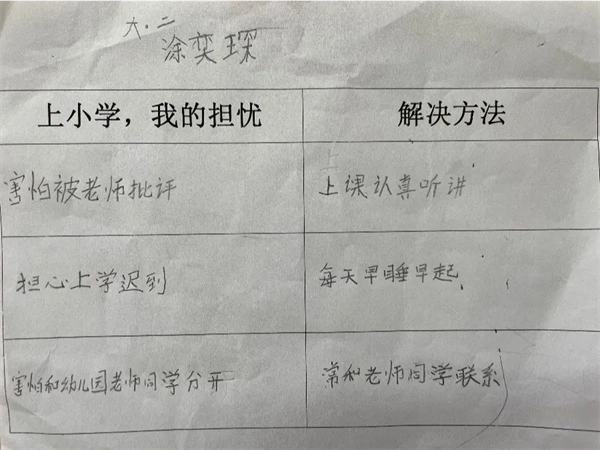 大.二
涂奕琛
上小学，我的担忧 解决方法
害怕被老师批评 上课认真听讲
担心上学迟到 每天早睡早起
害怕和幼儿园老师同学分开 常和老师同学联系